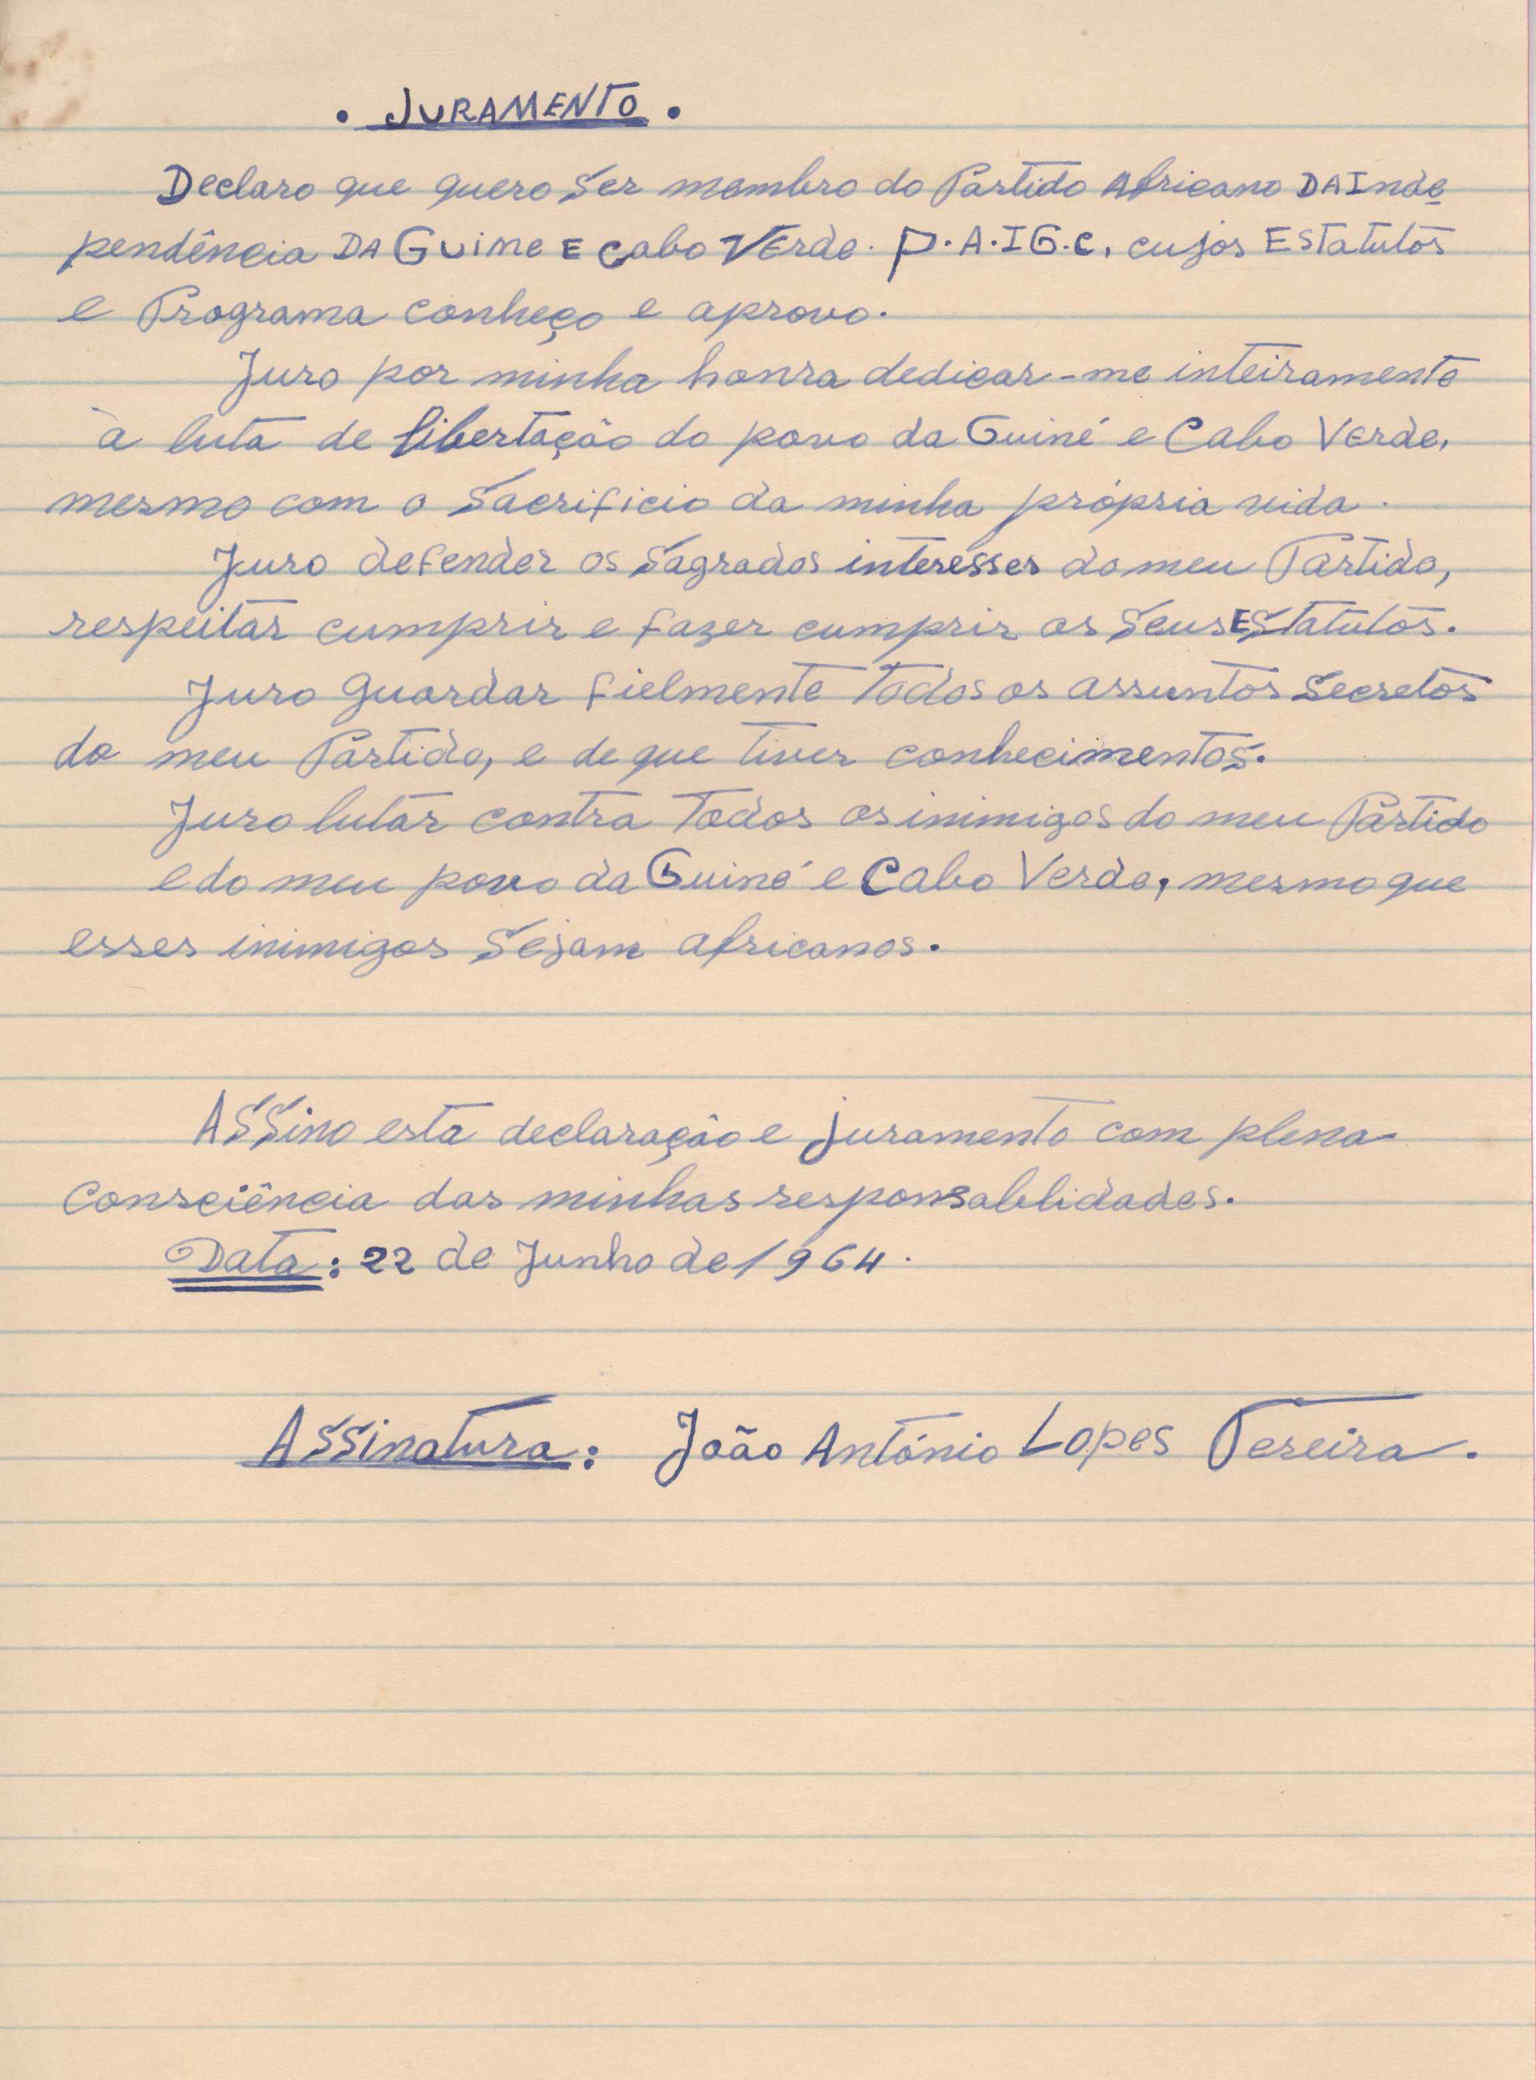 . JURAMENTO .
Declaro que quero ser membro do Partido Africano DA Inde
pendência DA Guine E Cabo Verde. P.A.IG.C, cujos Estatutos
e Programa conheço e aprovo.
Juro por minha honra dedicar-me inteiramente
à luta de libertação do povo da Guiné e Cabo Verde,
mesmo com o Sacrificio da minha própria vida.
Juro defender os Sagrados interesses do meu Partido,
respeitar cumprir e fazer cumprir os Seus EStatutos.
Juro guardar fielmente todos os assuntos Secretos
do meu Partido, e de que tiver conhecimentos.
Juro lutar contra Todos os inimigos do meu Partido
e do meu povo da Guiné e Cabo Verde, mesmo que
esses inimigos Sejam africanos.
ASSino esta declaração e juramento com plena
Consciência das minhas responsabilidades.
Data: 22 de Junho de 1964.
ASSinatura: João António Lopes Pereira.